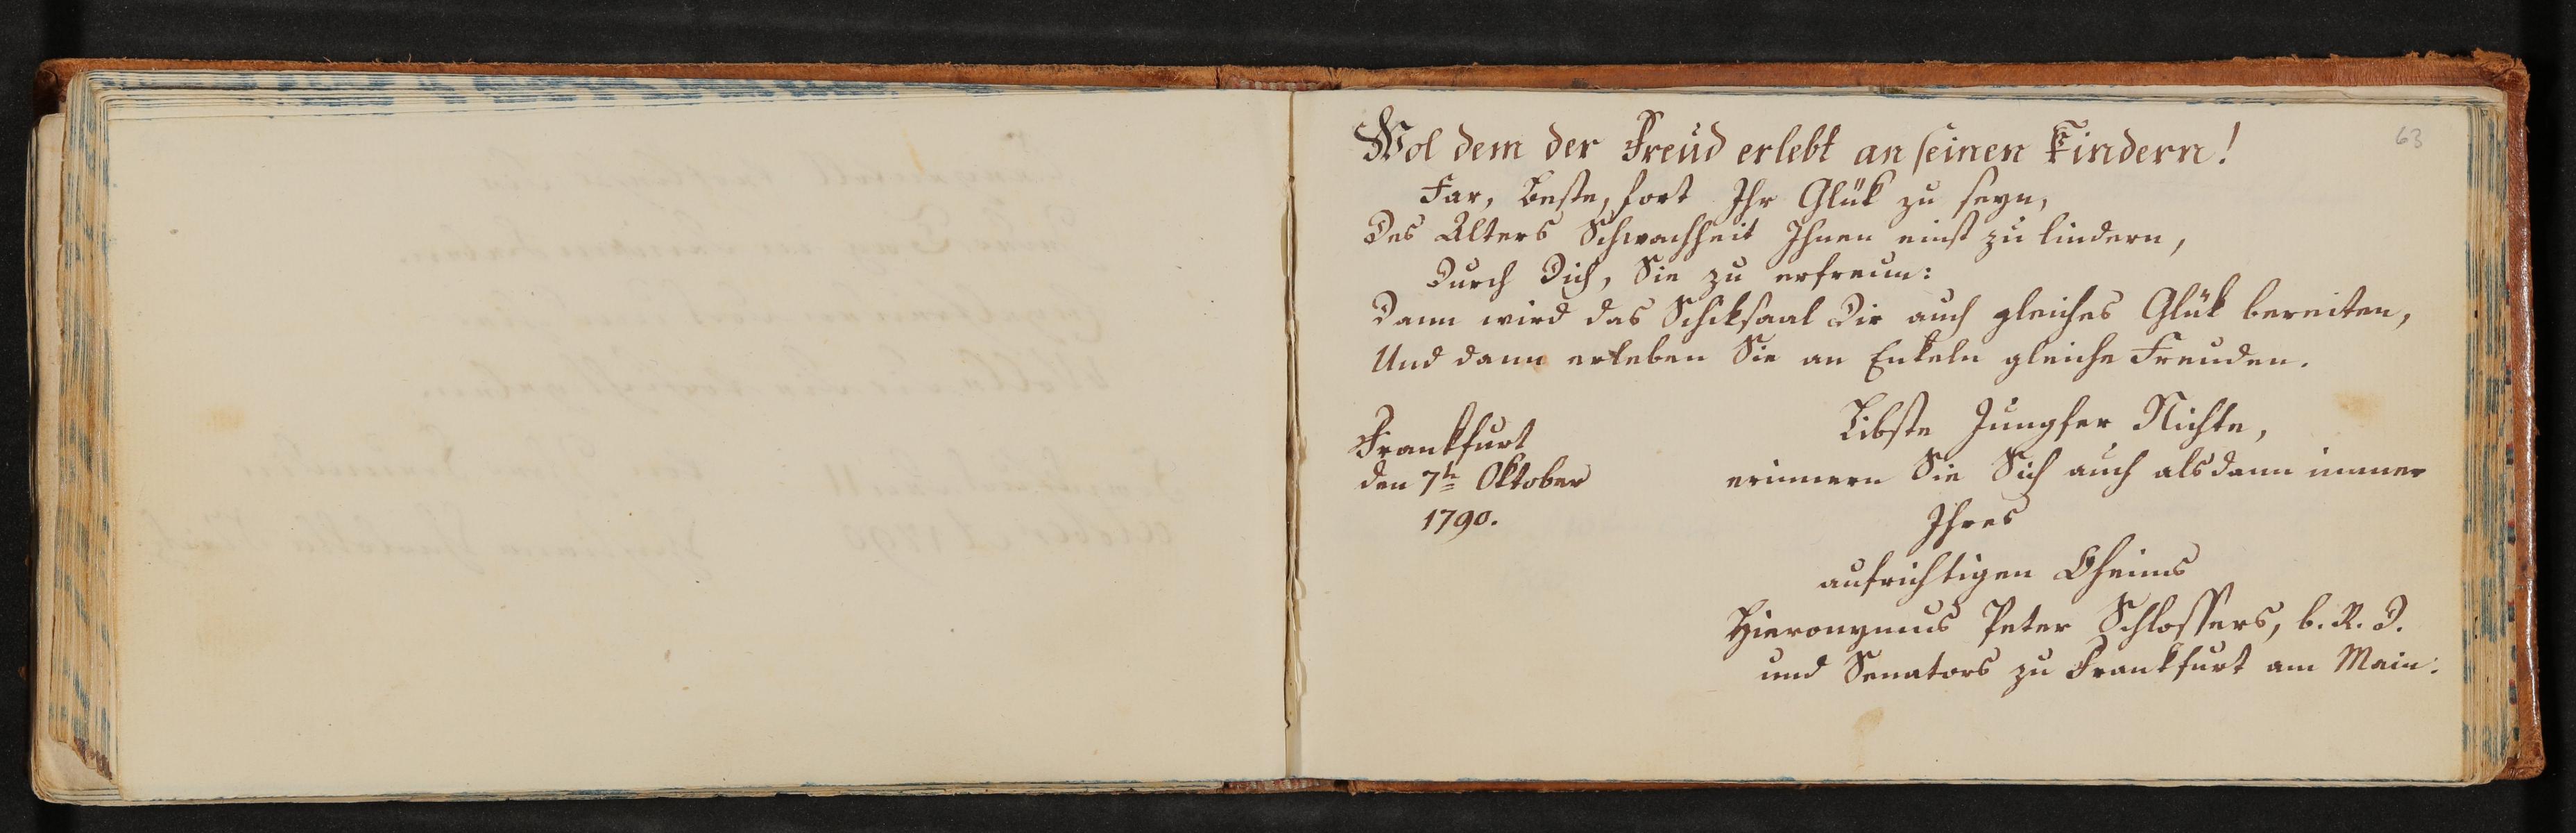 63
Wol dem der Freud erlebt an seinen Kindern!
Far, Beste, fort Ihr Glük zu seyn,
Des Alters Schwachheit Ihnen einst zu lindern,
Durch Dich, Sie zu erfreun:
Dann wird das Schiksaal Dir auch gleiches Glük bereiten,
Und dann erleben Sie an Enkeln gleiche Freuden.
Frankfurt
den 7tn Oktober
1790.
Libste Jungfer Nichte,
erinnern Sie Sich auch alsdann immer
Ihres
aufrichtigen Oheims
Hieronymus Peter Schlossers, b. R. D.
und Senators zu Frankfurt am Main.